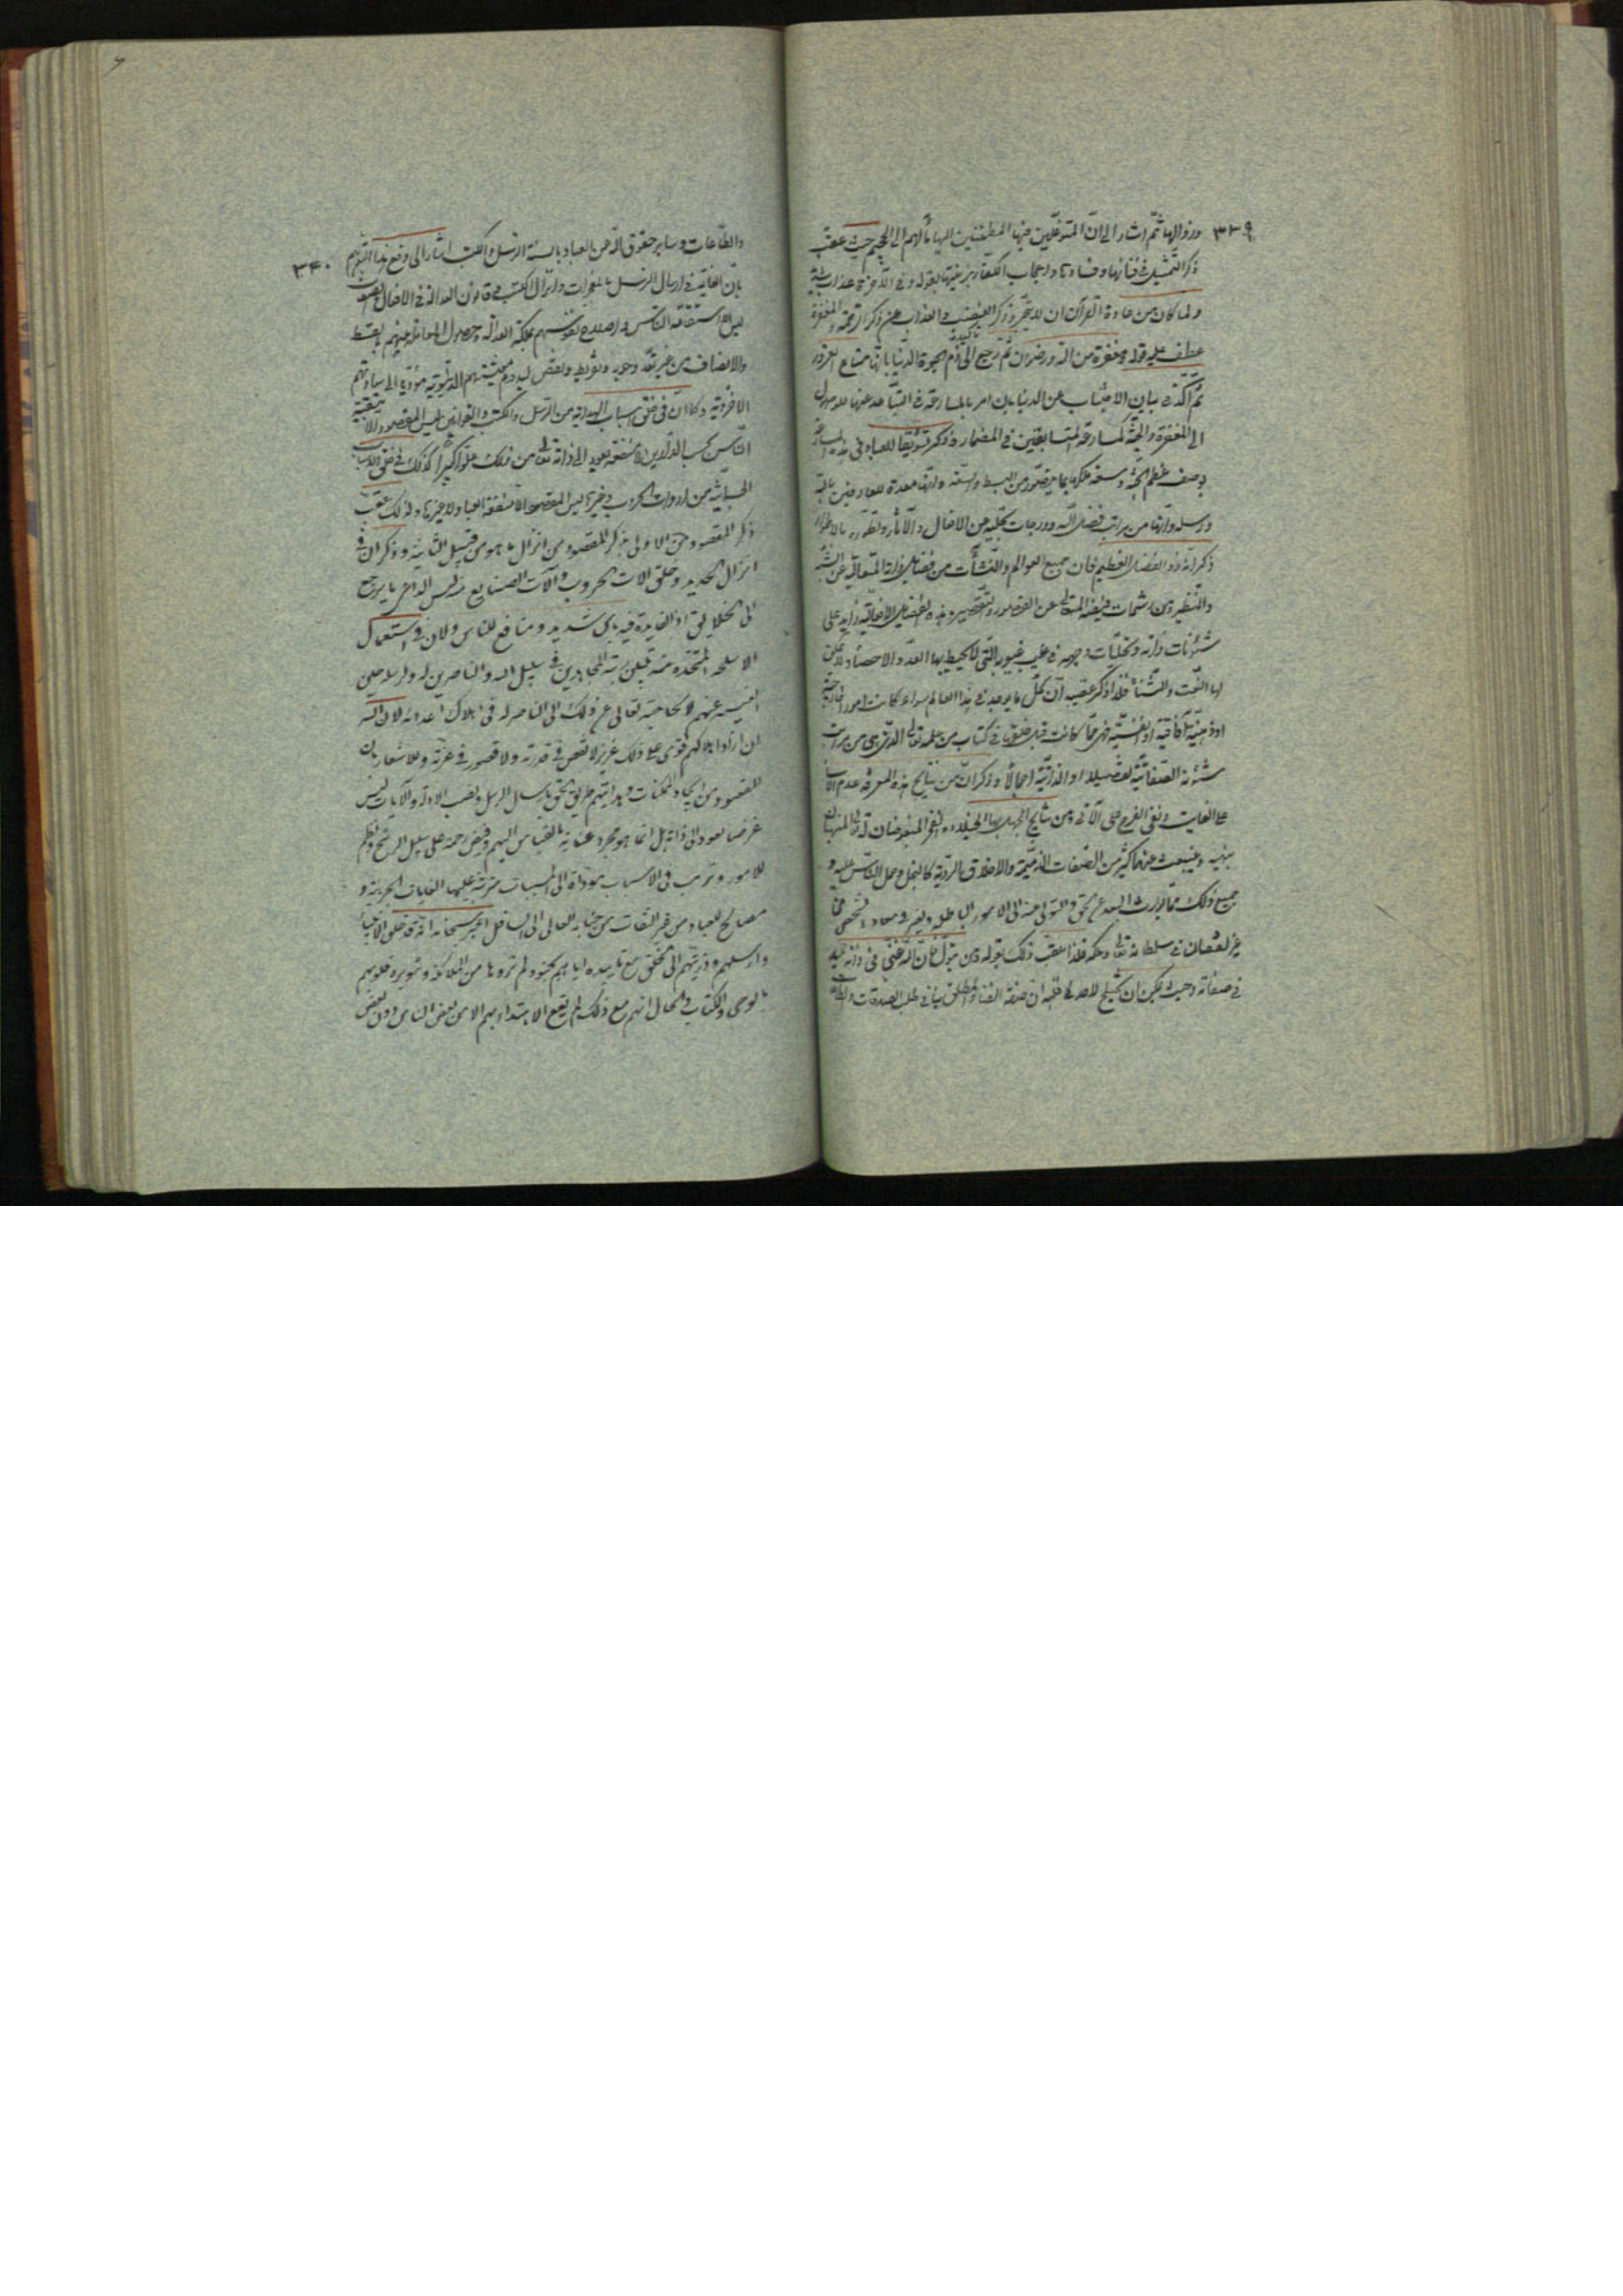 ٣٣٩
وزوالها ثمّ اشار الى انّ المتوغّلين فيها المطمئنين اليها مآلهم الى الجحيم حيث عقّب
ذكر التمثيل في فنائها وفسادها واعجاب الكفار بزينتها بقوله وفي الآخرة عذاب شديد
ولما كان من عادة القرآن ان لا يتجرّد ذكر الغضب والعذاب عن ذكر الرحمة والمغفرة
عطف عليه قوله ومغفرة من الله ورضوان ثم رجع الى ذم الحيوة الدنيا بانّها متاع الغرور تاكيدا
ثم اكّد في بيان الاجتناب عن الدنيا بان امر بالمسارعة في التباعد عنها للوصول
الى المغفرة والجنّة كمسارعة المتسابقين في المضمار وذكر تشويقا للعباد في هذه المسارعة
بوصف عظم الجنّة وسعة ملكها بما يتصوّر من البسط والسّعة وانّها معدة للعارفين بالله
ورسله وانّها من مراتب فضل الله ودرجات تجلّيه من الافعال والآثار وتطوّره بالاطوار
ذكر انّه ذو الفضل العظيم فان جميع العوالم والنشآت من فضايل ذاته المتعالية عن الشبه
والنظير ومن رشحات فيضه المتعالى عن القصور والتقصير وهذه الفضايل الافعالية زايد على
شئونات ذاته وتجلّيات وجهه في غيب غيوبه التي لا يحيط بها العدّ والاحصاء ولا يمكن
لها النّعت والثّناء فلذا ذكر عقيبه ان كلّ ما يوجد في هذا العالم سواء كانت امورا خارجية
او ذهنيّة آفاقية او انفسيّة فهي مما كانت قبل خلقها في كتاب من علمه تعالى الذي هي من مراتب
شئونه الصّفاتيّة تفصيلا او الذاتيّة اجمالا وذكر انّ من نتايج هذه المعرفة عدم الاسا
على الفايت ونفى الفرح على الآتي ومن نتايج الجهل بها الخيلاء والفخر المبغوضان له تعالى المنهيان
بنهيه وينبعث عنهما كثير من الصّفات الذميمة والاخلاق الرديّة كالبخل وحمل الناس عليه و
جميع ذلك ممّا يورث البعد عن الحق والتولى عنه الى الامور الباطلة وليس في معاداة شخص ممّا
يوجب نقصان في سلطانه تعالى وملكه فلذا عقّب ذلك بقوله ومن يتولّ فان الله غني في ذاته حميد
في صفاته وحيث يمكن ان يختلج لاحد في قلبه ان صفة الغناء المطلق ينافي طلب الصدقات والزكاة
٣٤٠
والطّاعات وساير حقوق الله من العباد بالسنة الرسل والكتب اشار الى دفع هذا التوهّم
بان الغاية في ارسال الرسل بالمعجزات وانزال الكتب وقانون العدالة في الافعال والصفات
ليس الا استقامة الناس واصلاح نفوسهم بملكة العدالة وحصول المعاملة بينهم بالقسط
والانصاف من غير تعدّ وجور وتفريط ونقص ليدوم معيشتهم الدنيوية مؤدّية الى سعادتهم
الاخروية وكما انّ في خلق اسباب الهداية من الرّسل والكتب والقوانين ليس المقصود الا منفعة
النّاس بحسب الدارين لا منفعة يعود الى ذاته تعالى من ذلك علوّا كبيرا كذلك في خلق الاسباب
الجسمانية من ادوات الحروب وغيرها ليس المقصود الا منفعة العباد لا غيرها ولذلك عقّب
ذكر المقصود من الاولى بذكر المقصود من انزال ما هو من قبيل الثانية وذكر ان في
انزال الحديد وخلق الات الحروب وآلات الصنايع ليس الداعي ما يرجع
الى الخلايق اذ الفايدة فيه باس شديد ومنافع للناس ولان في استعمال
الاسلحة المتخذة منه يتبيّن رتبة المجاهدين في سبيل الله والناصرين له ولرسله حين
الغيبة عنهم لا لحاجته تعالى عن ذلك الى الناصر له في اهلاك اعدائه لان الله
ان اراد اهلاكهم قوى على ذلك عزيز لا نقص في قدرته ولا قصور في عزته وللاشعار بان
المقصود من ايجاد الممكنات وهدايتهم طريق الحق بارسال الرسل ونصب الادلة والآيات ليس
غرضا يعود الى ذاته بل انما هو مجرد عناية بالقياس اليهم وفيض رحمة على سبيل الرشح ونظم
للامور وترتب في الاسباب مؤداة الى المسببات مترتبة عليها الغايات الخيرية و
مصالح للعباد من غير التفات من جنابه العالى الى السافل اخبر سبحانه انه قد خلق الانبياء
وارسلهم وذريتهم الى الخلق مع تاييده اياهم بجنود لم تروها من الملائكة وتنوير قلوبهم
بالوحى والكتاب والحال انهم مع ذلك لم يقع الاهتداء بهم الا من بعض الناس دون بعض